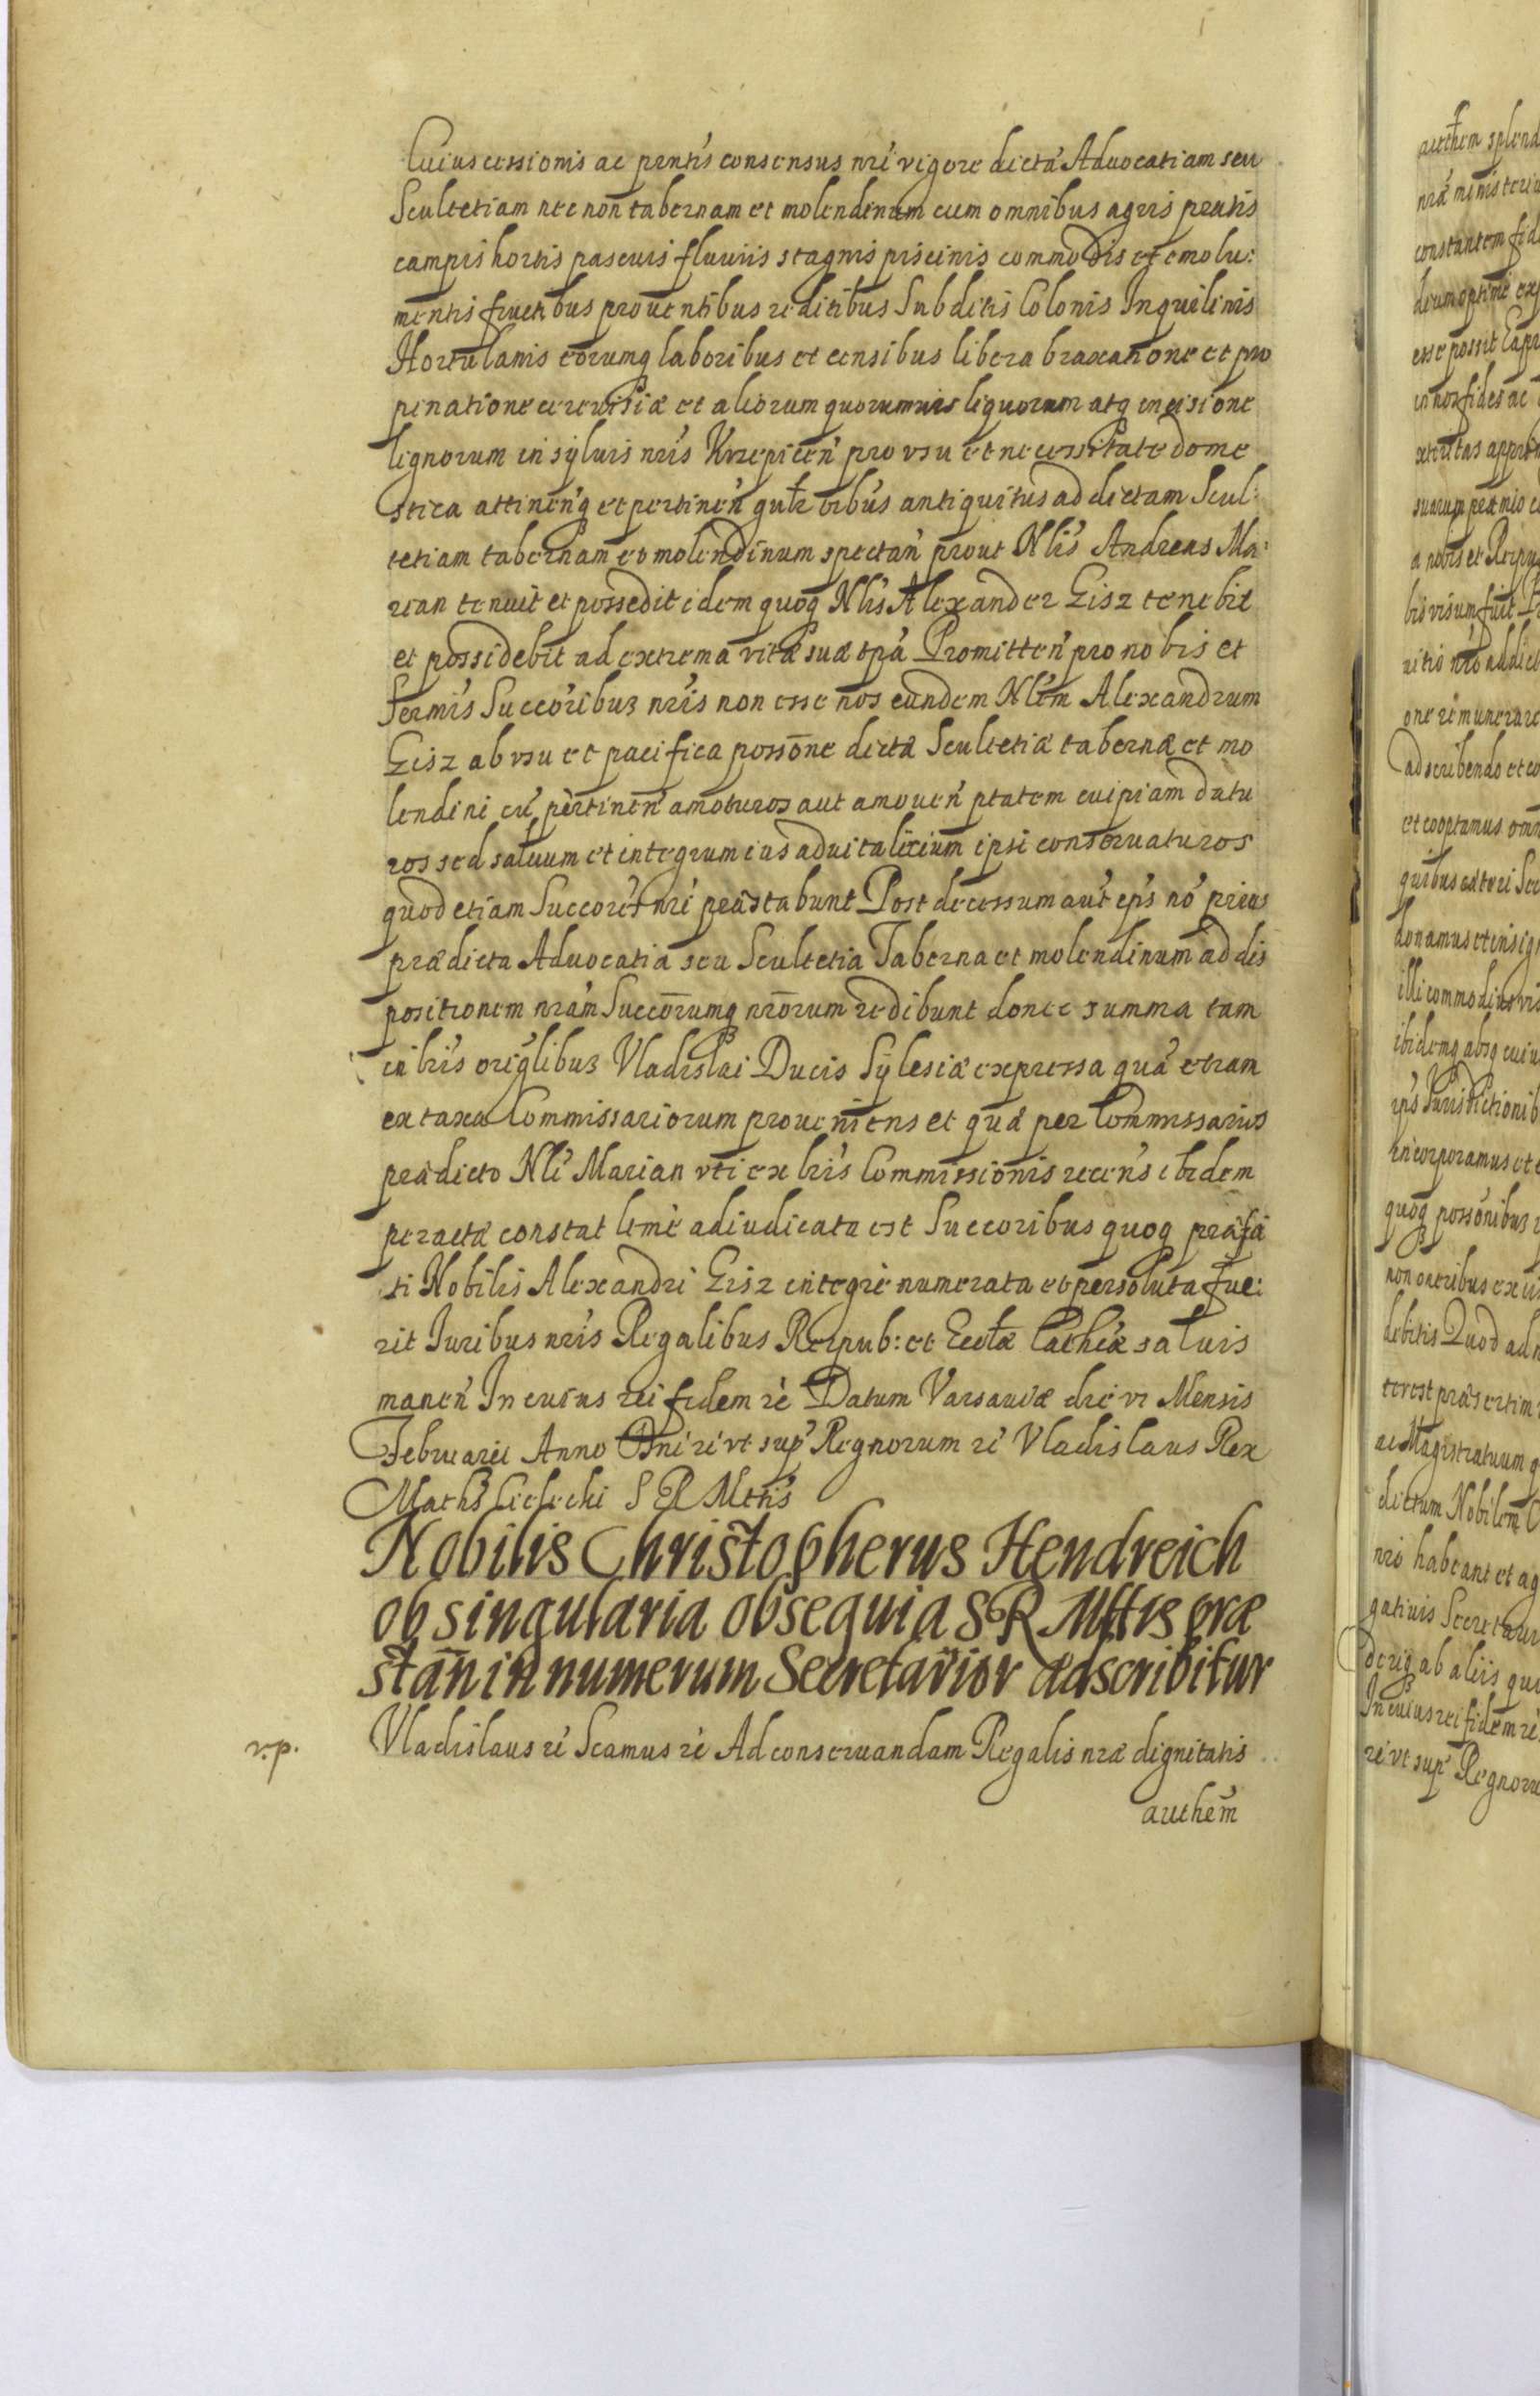 Cuius cessionis ac pntis consensus nri vigore dictā Aduocatiam seu
Scultetiam nec non tabernam et molendinum cum omnibus agris pratis
campis hortis pascuis fluuiis stagnis piscinis commodis et emolu:
mentis fructibus prouentibus reditibus Subditis Colonis Inquilinis
Hortulanis eorumq laboribus et censibus libera braxatione et pro
pinatione cereuisiæ et aliorum quorumuis liquorum atq incisione
lignorum in syluis nris Krzepicen pro vsu et necessitate dome
stica attinenq et pertinen gnlr oibus antiquitus ad dictam Scul:
tetiam tabernam et molendinum spectan prout Nlis Andreas Ma:
rian tenuit et possedit idem quoq Nlis Alexander Gisz tenebit
et possidebit ad extrema vitæ suæ tpa Promitten pro nobis et
Sermis Succoribus nris non esse nos eundem Nlem Alexandrum
Gisz ab vsu et pacifica possone dictæ Scultetiæ tabernæ et mo
lendini cū pertinen amoturos aut amouen ptatem cuipiam datu
ros sed saluum et integrum ius aduitalicium ipsi conseruaturos
quod etiam Succores nri præstabunt Post decessum aut eps no prius
prædicta Aduocatia seu Scultetia Taberna et molendinum ad dis
positionem nram Succorumq nrorum redibunt donec summa tam
in lris origlibus Vladislai Ducis Sylesiæ expressa quā etiam
ex taxa Commissariorum proueniens et quæ per Commissarios
prædicto Nli Marian vti ex lris Commissionis recens ibidem
peractæ constat leme adiudicata est Succoribus quoq præfa
ti Nobilis Alexandri Gisz integre numerata et persoluta fue:
rit Iuribus nris Regalibus Reipub: et Ecclæ Cathcæ saluis
manen In cuius rei fidem rc Datum Varsauiæ die vi Mensis
Februarii Anno Dni rc vt sup Regnorum rc Vladislaus Rex
Maths Cielecki S R Mttis
Nobilis Christopherus Hendreich
ob singularia obsequia S R Mttis præ
stan in numerum Secretarior adscribitur
v.p. Vladislaus rc Scamus rc Ad conseruandam Regalis nræ dignitatis
authem
authem splend
nræ ministeriu
constantem fid
deum optime exp
esse possit Capa
in
suarum præmio
a nobis et Reipu
bis visum fuit
ritis nro addict
one remunerare
adscribendo et co
et cooptamus omn
quibus cæteri Sec
donamus et insig
illi commodius vis
ibidemq absq cuius
ips Iurisdictionib
incorporamus et
quoq possonibus
non oneribus ex iis
debitis Quod ad n
terest præsertim
ac Magistratuum q
dictum Nobilem C
nro habeant et ag
gatiuis Secretarii
deriq ab aliis qui
In cuius rei fidem rc
rc vt sup Regnoru